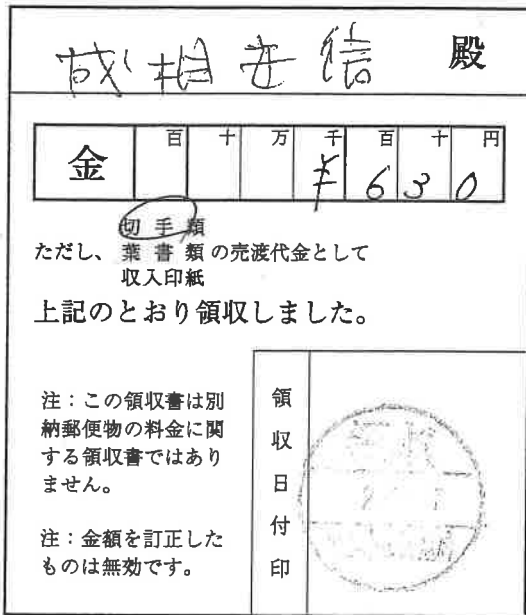 成相安信 殿
金 百 十 万 千 百 十 円
¥630
切手類
ただし、 葉書類 の売渡代金として
収入印紙
上記のとおり領収しました。
注：この領収書は別
納郵便物の料金に関
する領収書ではあり
ません。
注：金額を訂正した
ものは無効です。
領収日付印